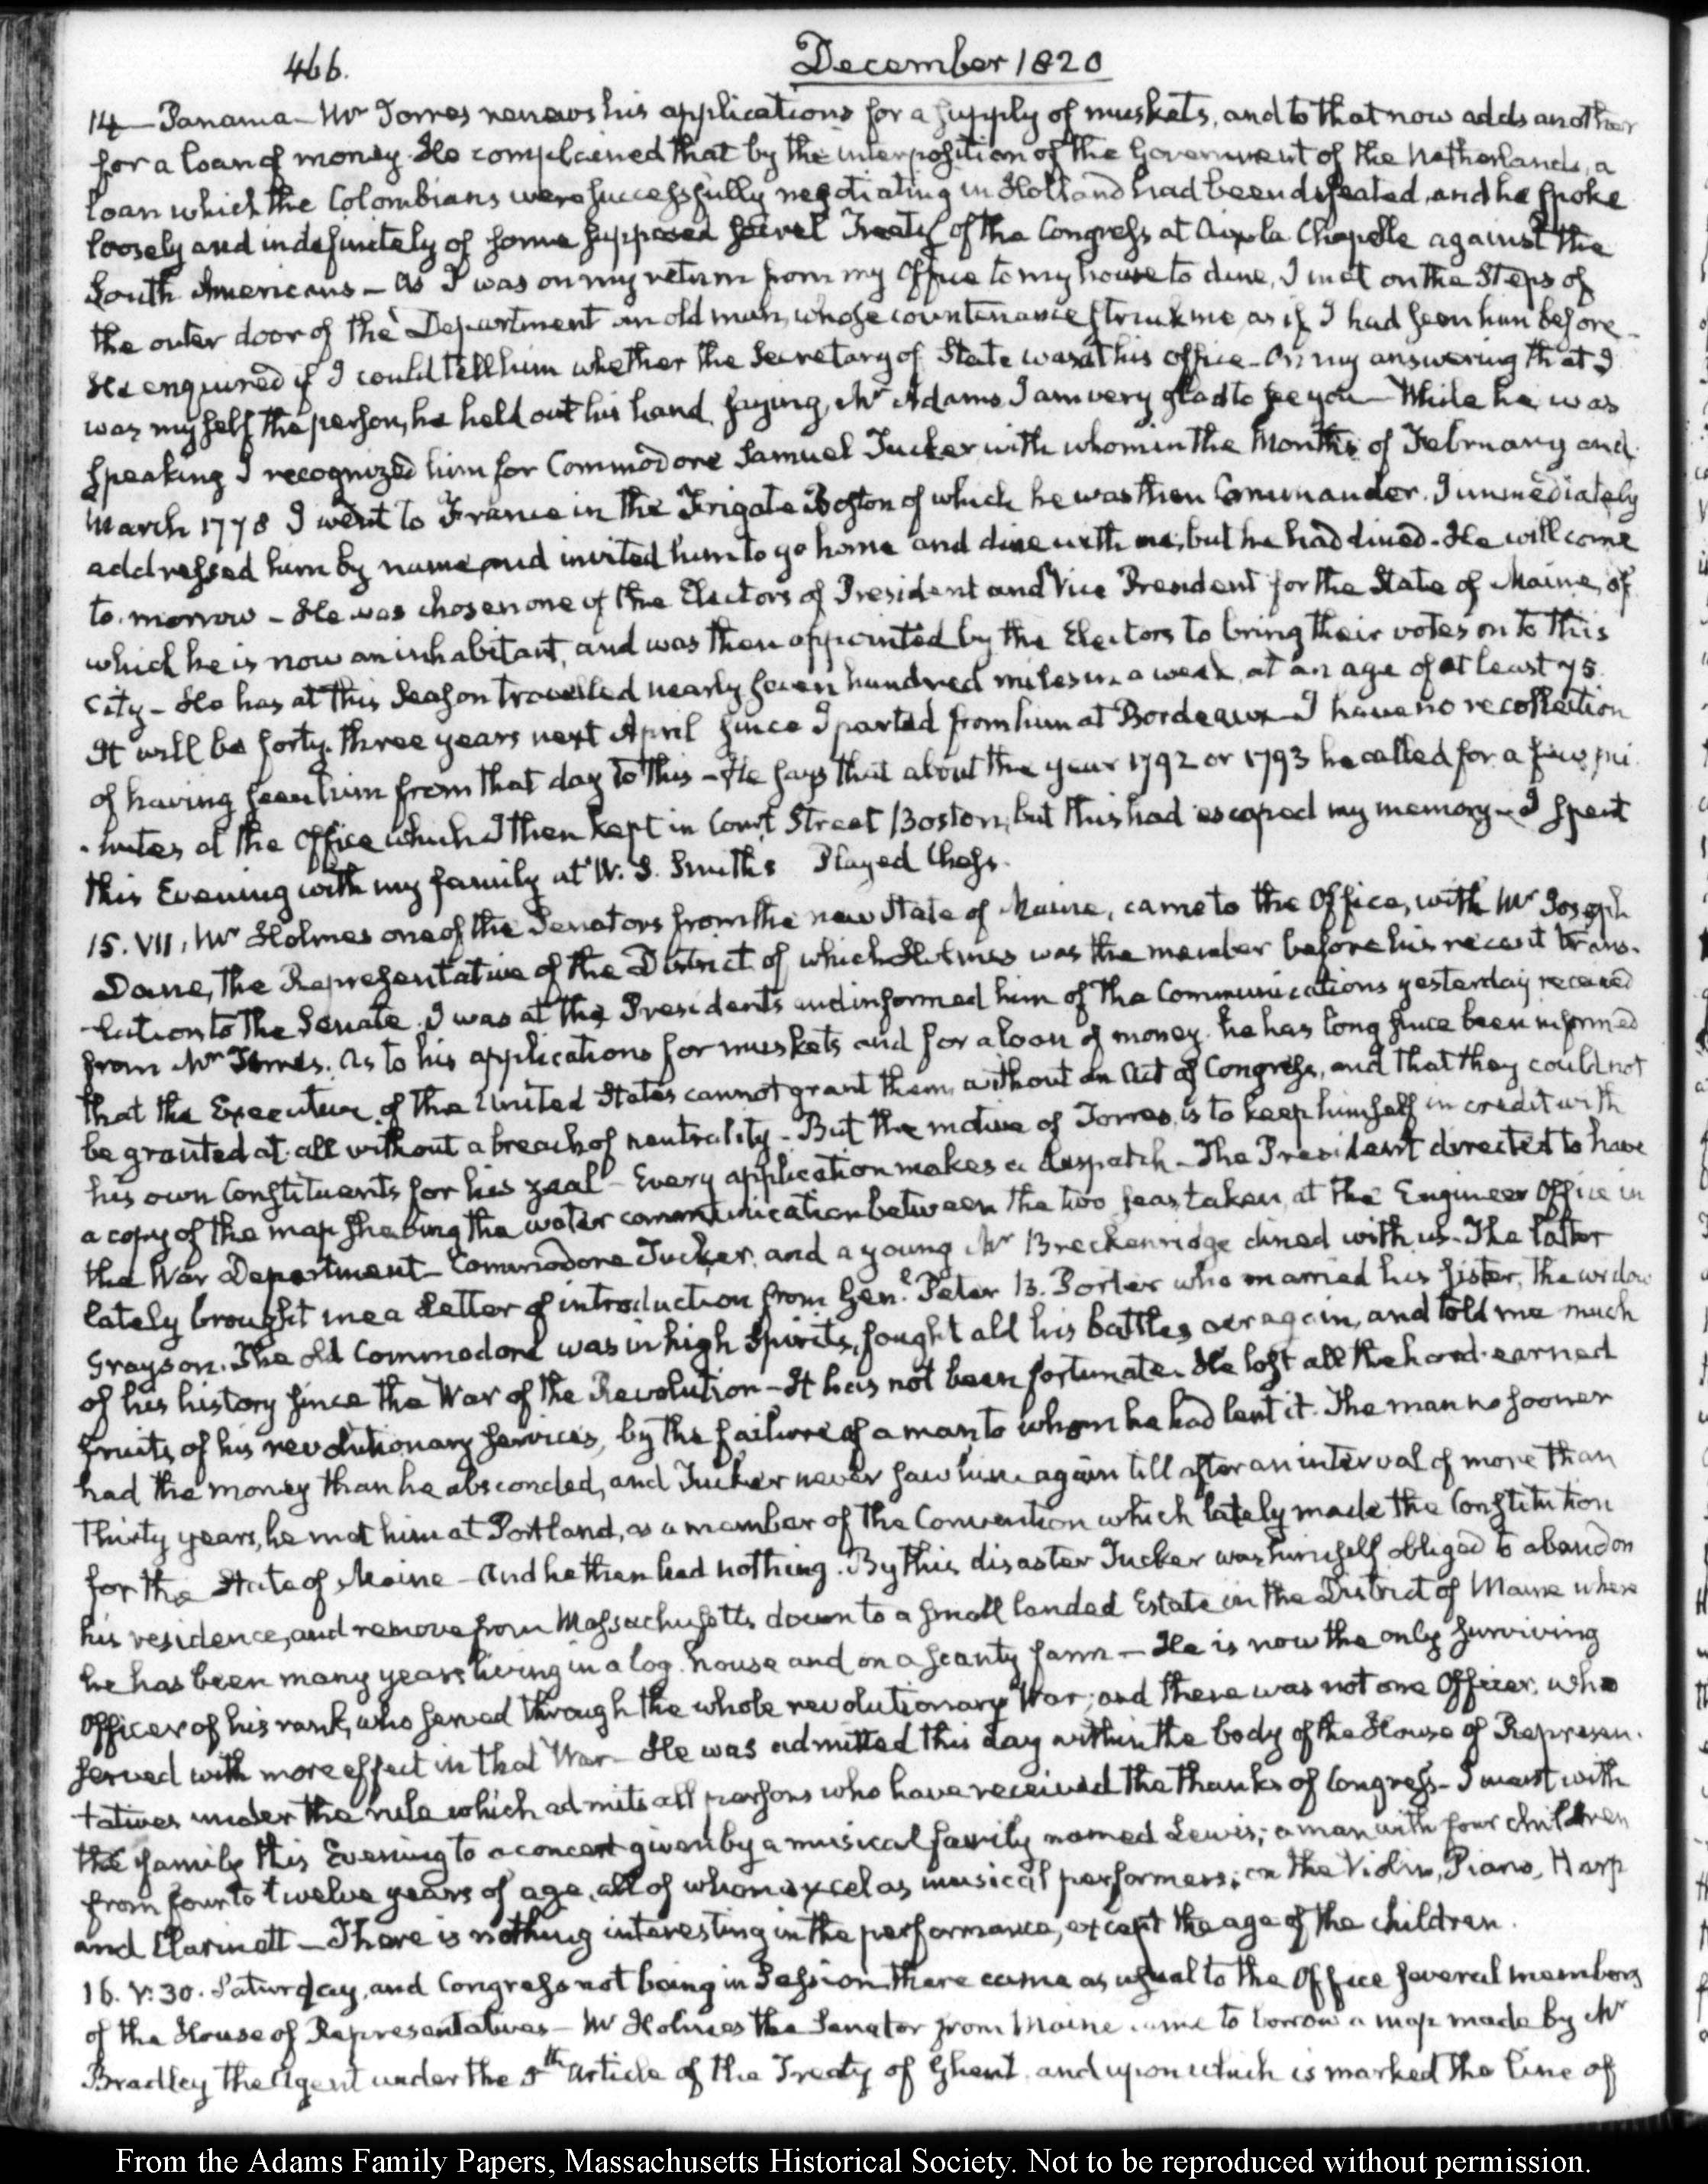 466.
December 1820
14 — Panama — Mr Torres renews his applications for a supply of muskets, and to that now adds another
for a loan of money. He complained that by the interposition of the Government of the Netherlands, a
loan which the Colombians were successfully negotiating in Holland had been defeated, and he spoke
loosely and indefinitely of some supposed secret Treaty of the Congress at Aix la Chapelle against the
South Americans — As I was on my return from my Office to my house to dine, I met on the Steps of
the outer door of the Department an old man, whose countenance struck me, as if I had seen him before —
He enquired if I could tell him whether the Secretary of State was at his office — On my answering that I
was myself the person, he held out his hand, saying, Mr Adams I am very glad to see you — While he was
speaking I recognized him for Commodore Samuel Tucker with whom in the Months of February and
March 1778 I went to France in the Frigate Boston of which he was then Commander. I immediately
addressed him by name, and invited him to go home and dine with me, but he had dined — He will come
to-morrow — He was chosen one of the Electors of President and Vice President for the State of Maine, of
which he is now an inhabitant, and was then appointed by the Electors to bring their votes on to this
City — He has at this Season travelled nearly seven hundred miles in a week, at an age of at least 75.
It will be forty-three years next April since I parted from him at Bordeaux — I have no recollection
of having seen him from that day to this — He says that about the year 1792 or 1793 he called for a few mi-
-nutes at the Office which I then kept in Court Street Boston, but this had escaped my memory — I spent
this Evening with my family at W. S. Smith's Played Chess.
15. VII. Mr Holmes one of the Senators from the new State of Maine, came to the Office, with Mr Joseph
Dane, the Representative of the District of which Holmes was the member before his recent trans-
-lation to the Senate. I was at the Presidents and informed him of the Communications yesterday received
from Mr Torres. As to his applications for muskets and for a loan of money. he has long since been informed
that the Executive of the United States cannot grant them, without an Act of Congress, and that they could not
be granted at all without a breach of neutrality — But the motive of Torres, is to keep himself in credit with
his own Constituents for his zeal — Every application makes a despatch — The President directed to have
a copy of the map shewing the water communication between the two seas taken, at the Engineer Office in
the War Department — Commodore Tucker, and a young Mr Breckenridge dined with us — The latter
lately brought me a Letter of introduction from Genl. Peter B. Porter who married his sister, the widow
Grayson. The old Commodore was in high Spirits, fought all his battles oer again, and told me much
of his history since the War of the Revolution — It has not been fortunate. He lost all the hard-earned
fruits of his revolutionary services, by the failure of a man to whom he had lent it. The man no sooner
had the money than he absconded, and Tucker never saw him again till after an interval of more than
thirty years, he met him at Portland, as a member of the Convention which lately made the Constitution
for the State of Maine — And he then had nothing. By this disaster Tucker was himself obliged to abandon
his residence, and remove from Massachusetts down to a small landed Estate in the District of Maine where
he has been many years living in a log-house and on a scanty farm — He is now the only surviving
Officer of his rank, who served through the whole revolutionary War, and there was not one Officer, who
served with more effect in that War — He was admitted this day within the body of the House of Represen-
tatives under the rule which admits all persons who have received the thanks of Congress — I went with
the family this Evening to a concert given by a musical family named Lewis; a man with four children
from four to twelve years of age, all of whom excel as musical performers; on the Violin, Piano, Harp
and Clarinett — There is nothing interesting in the performance, except the age of the children.
16. V:30. Saturday, and Congress not being in Session there came as usual to the Office several members
of the House of Representatives — Mr Holmes the Senator from Maine came to borrow a map made by Mr
Bradley the Agent under the 5th Article of the Treaty of Ghent, and upon which is marked the line of
From the Adams Family Papers, Massachusetts Historical Society. Not to be reproduced without permission.